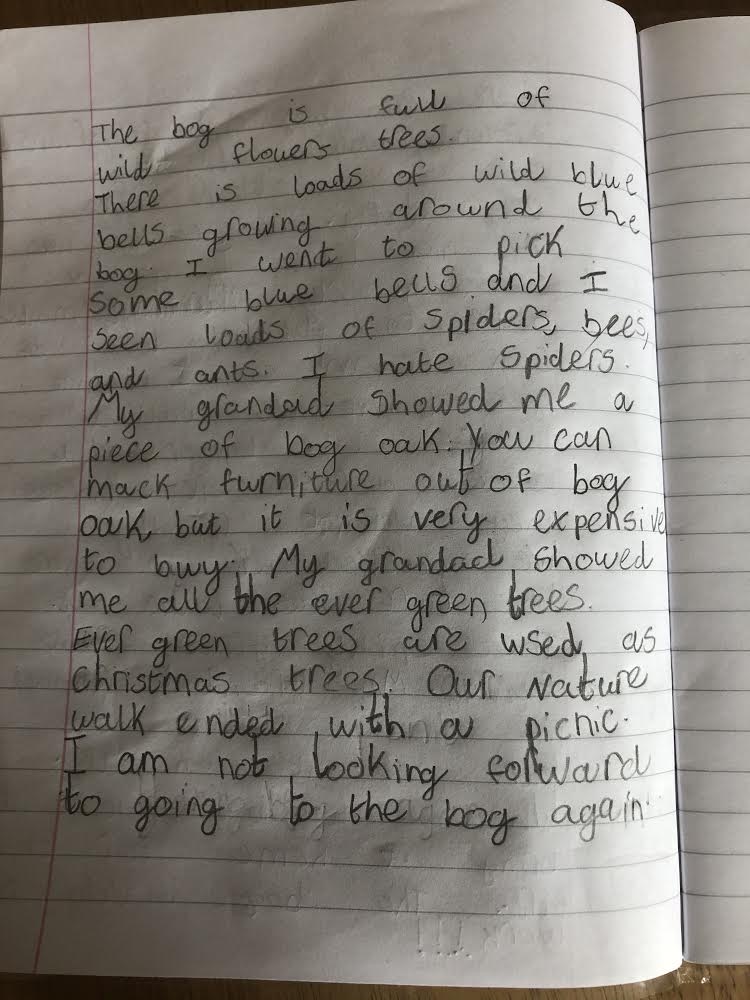 The bog is full of
wild flowers trees.
There is loads of wild blue
bells growing around the
bog. I went to pick
Some blue bells and I
seen loads of spiders, bees,
and ants. I hate spiders.
My grandad showed me a
piece of bog oak. You can
mack furniture out of bog
oak, but it is very expensive
to buy. My grandad showed
me all the ever green trees.
Ever green trees are used as
Christmas trees. Our Nature
walk ended with a picnic.
I am not looking forward
to going to the bog again.